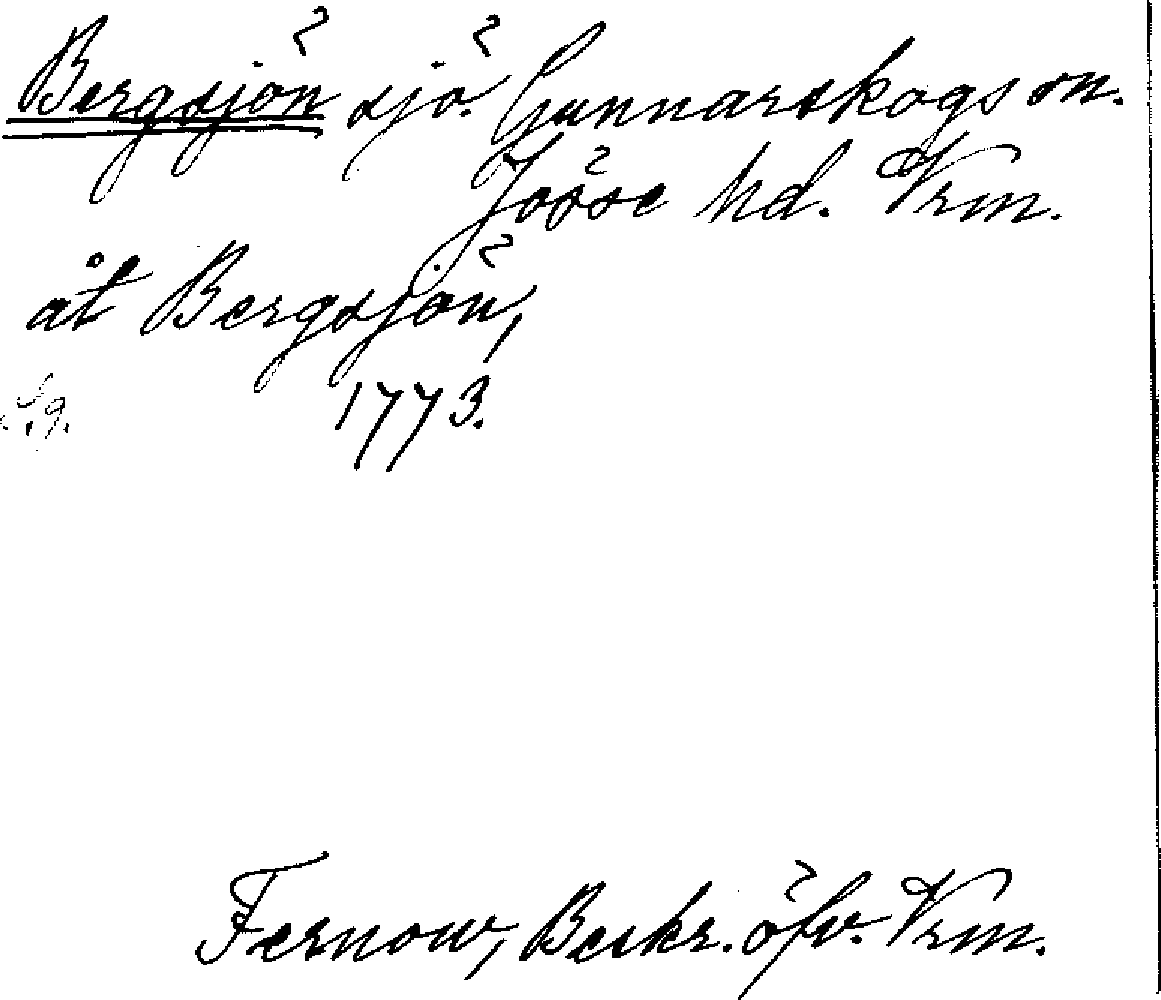 Bergsjön sjö. Gunnarskogs sn.
Jösse hd. Vrm.
åt Bergsjön,
1773.
Fernow, Beskr. öfv. Vrm.